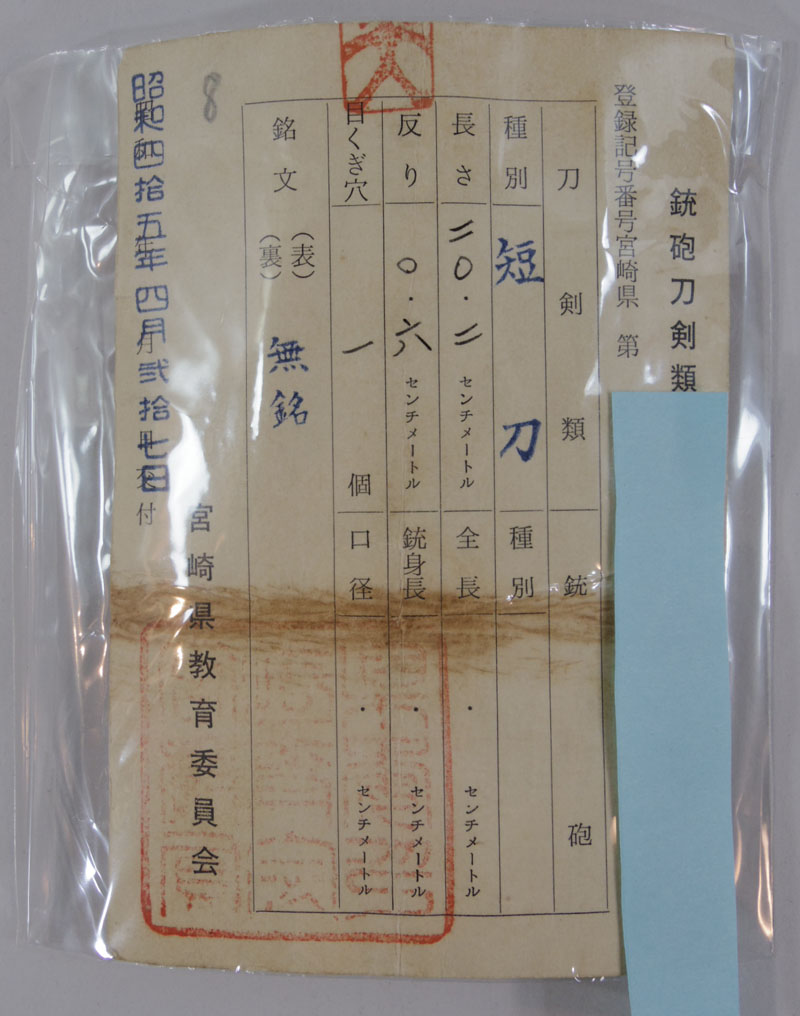 銃砲刀剣類
登録記号番号宮崎県 第
刀剣類 銃砲
種別 短刀 種別
長さ 二〇・二 センチメートル 全長 ・ センチメートル
反り 〇・六 センチメートル 銃身長 ・ センチメートル
目くぎ穴 一 個 口径 ・ センチメートル
銘文 (表) (裏) 無銘
宮崎県教育委員会
昭和四拾五年四月弐拾七日交付
8